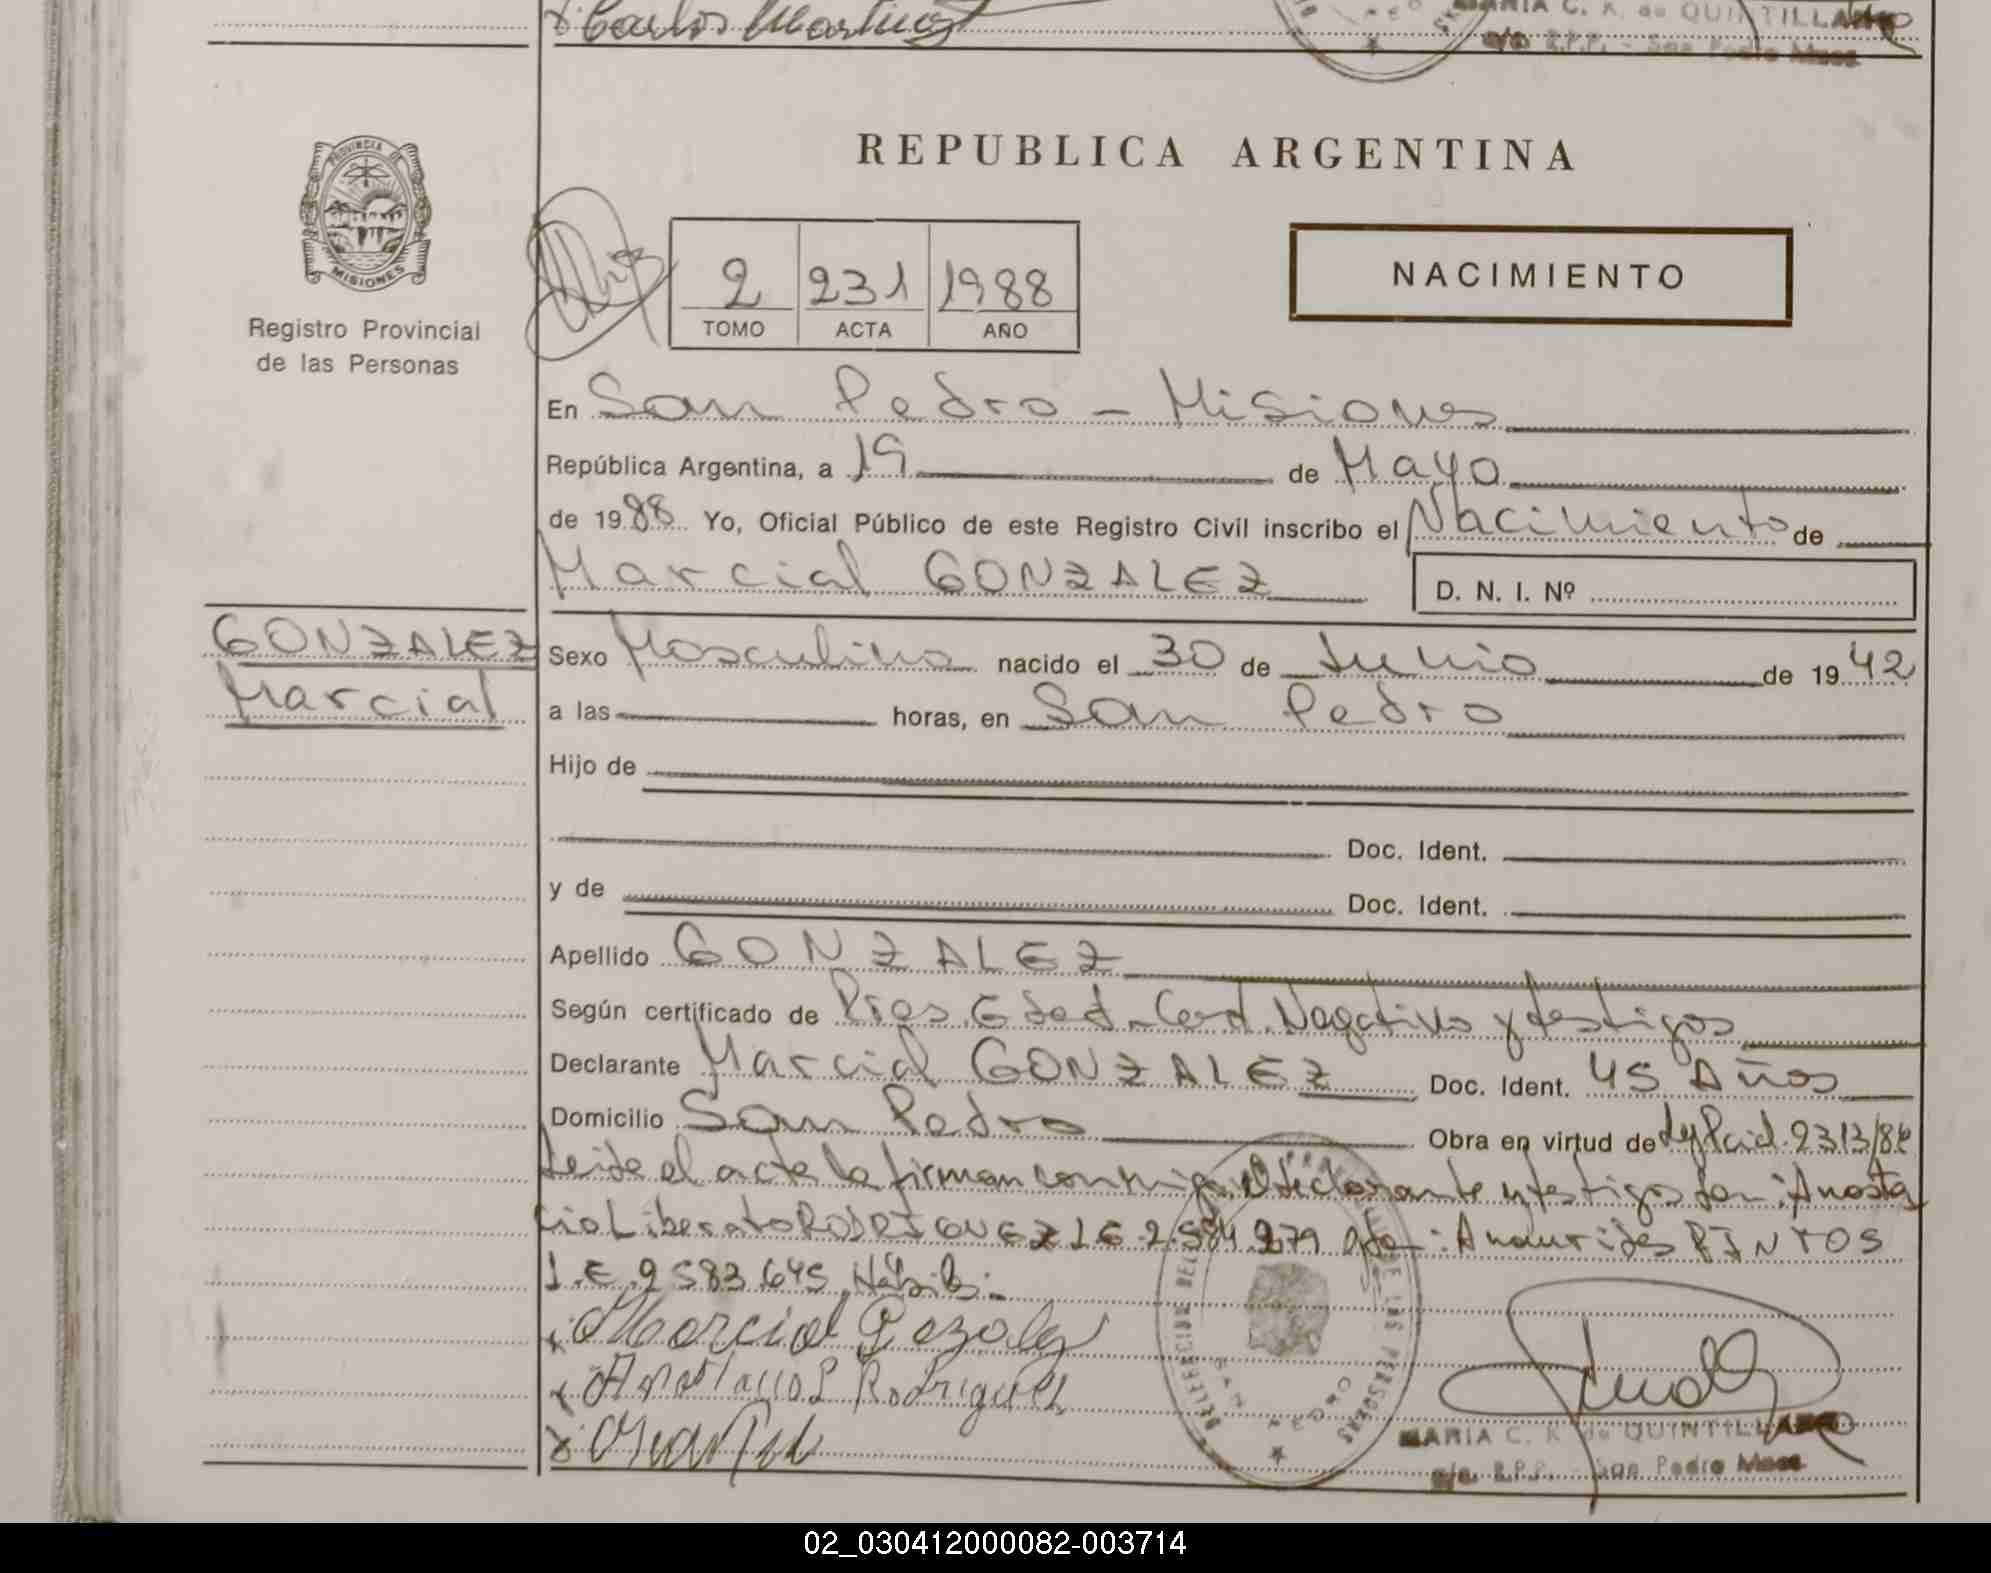 Carlos Martinez
MARIA C. K. de QUINTILLAN
R.P.P. - San Pedro Mnes
PROVINCIA DE
MISIONES
Registro Provincial
de las Personas
REPUBLICA ARGENTINA
2 231 1988
TOMO ACTA AÑO
NACIMIENTO
En San Pedro - Misiones
República Argentina, a 19 de Mayo
de 1988 Yo, Oficial Público de este Registro Civil inscribo el Nacimiento de
Marcial GONZALEZ D. N. I. Nº
GONZALEZ
Marcial
Sexo Masculino nacido el 30 de Junio de 1942
a las horas, en San Pedro
Hijo de
Doc. Ident.
y de Doc. Ident.
Apellido GONZALEZ
Según certificado de Pres. Edad - Cert. Negativo y testigos
Declarante Marcial GONZALEZ Doc. Ident. 45 Años
Domicilio San Pedro Obra en virtud de Ley Pcial. 2313/86
Leida el acta la firman conmigo el declarante y testigos Don: Anasta
cio Liberato RODRIGUEZ L.E. 2.584.279 Don: Amaurides PINTOS
L.E. 2583.645 Hábil:
Marcial Gozalez
Anastacio L Rodriguez
MARIA C. K. de QUINTILLAN
R.P.P. - San Pedro Mnes
02_030412000082-003714